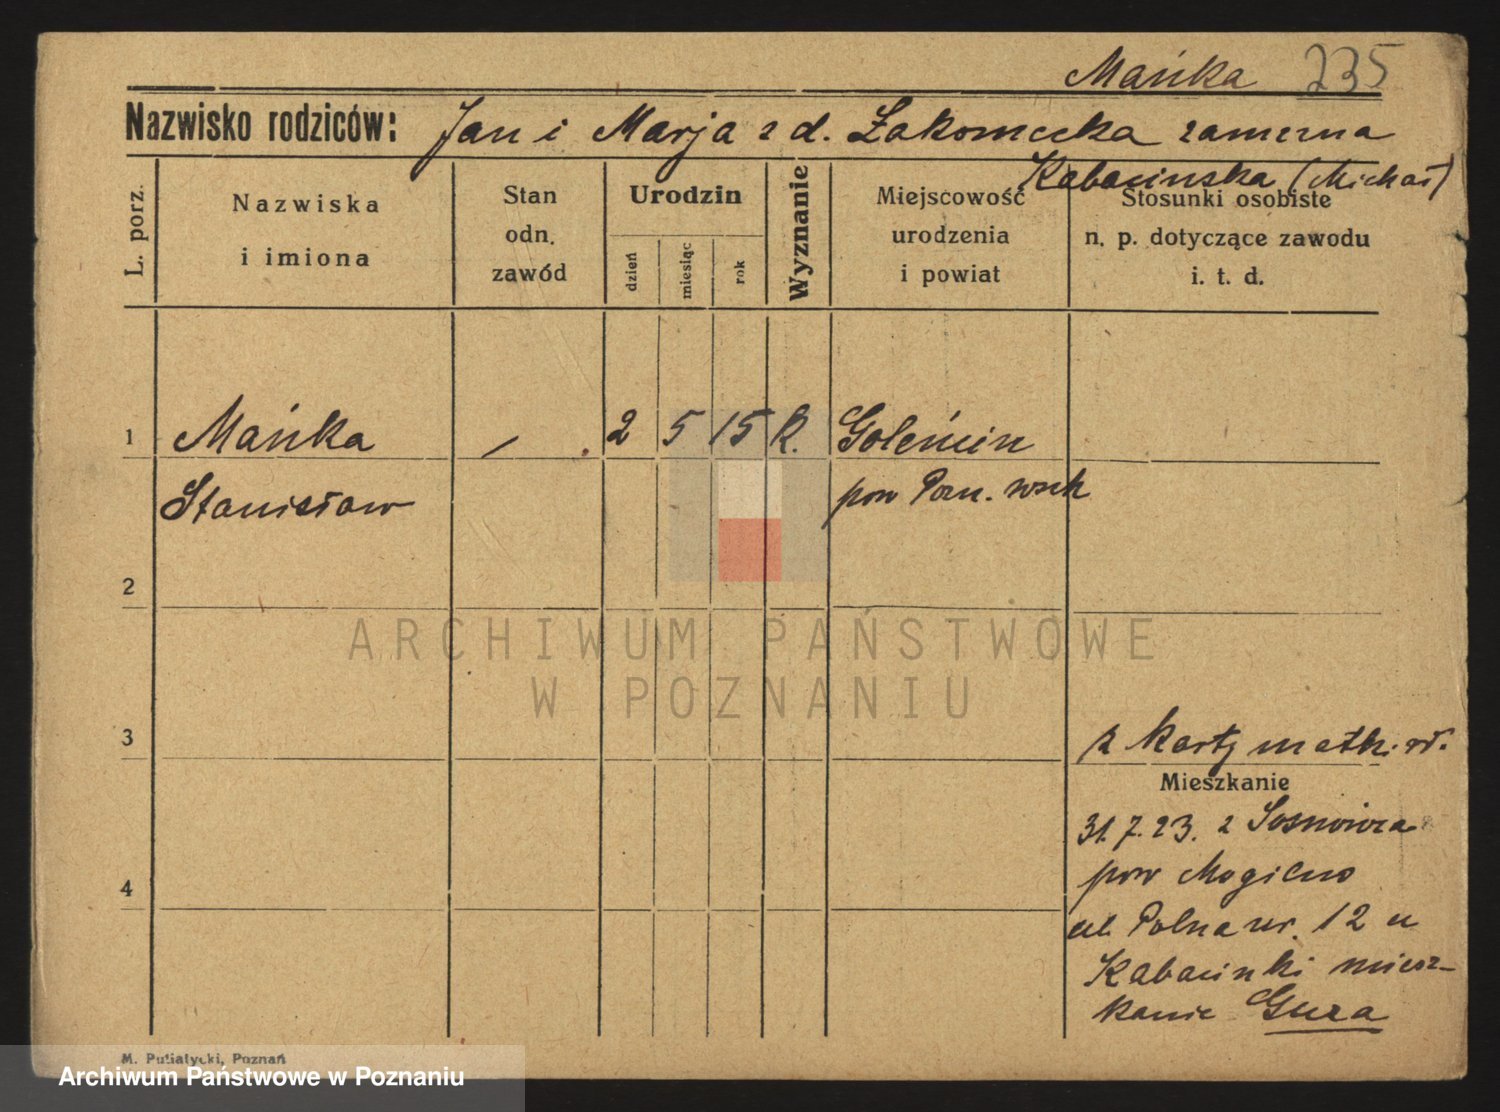 Mańka 235
Nazwisko rodziców: Jan i Marja z d. Łakomecka zamężna
Kabacinska (Michał)
L. porz.
Nazwiska
i imiona
Stan
odn.
zawód
Urodzin
dzień
miesiąc
rok
Wyznanie
Miejscowość
urodzenia
i powiat
Stosunki osobiste
n. p. dotyczące zawodu
i. t. d.
1 Mańka / 2 5 15 R. Golęcin
Stanisław pow Pozn. wsch
2
ARCHIWUM PAŃSTWOWE
W POZNANIU
3
z karty matk.
Mieszkanie
31.7.23. z
pow Mogilno
4
ul. Polna nr. 12 u
Kabacinki miesz-
kanie Gura
M. Putiatycki, Poznań
Archiwum Państwowe w Poznaniu